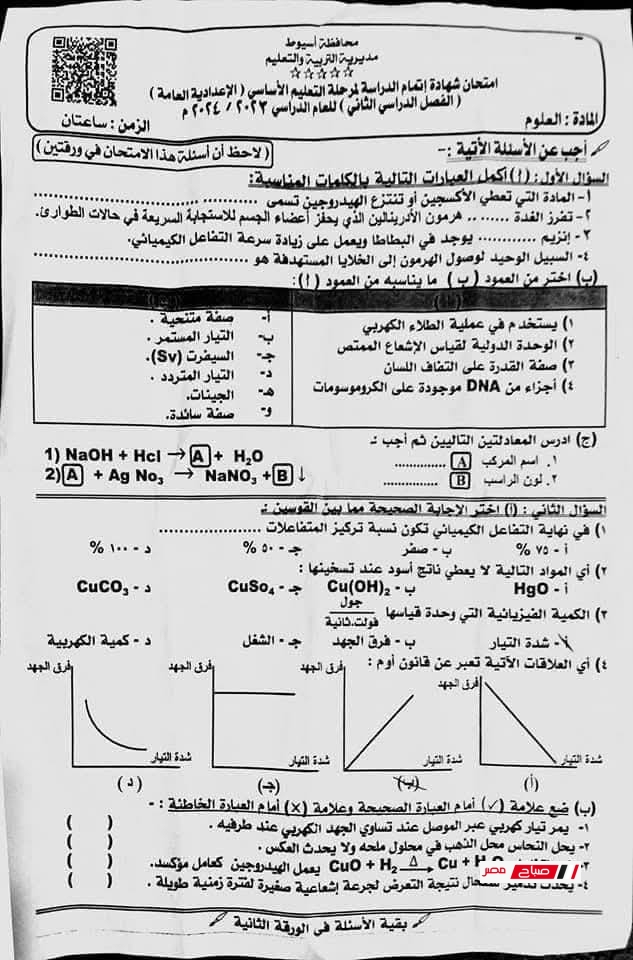 محافظة أسيوط
مديرية التربية والتعليم
☆☆☆☆☆
امتحان شهادة إتمام الدراسة لمرحلة التعليم الأساسي ( الإعدادية العامة )
( الفصل الدراسي الثاني ) للعام الدراسي ٢٠٢٣ / ٢٠٢٤ م
المادة : العلوم
الزمن : ساعتان
أجب عن الأسئلة الأتية :-
( لاحظ أن أسئلة هذا الامتحان في ورقتين )
السؤال الأول : ( أ ) أكمل العبارات التالية بالكلمات المناسبة:
١- المادة التي تعطي الأكسجين أو تنتزع الهيدروجين تسمى ....................
٢- تفرز الغدة ........ هرمون الأدرينالين الذي يحفز أعضاء الجسم للاستجابة السريعة في حالات الطوارئ.
٣- إنزيم ............ يوجد في البطاطا ويعمل على زيادة سرعة التفاعل الكيميائي.
٤- السبيل الوحيد لوصول الهرمون إلى الخلايا المستهدفة هو ....................
(ب) اختر من العمود ( ب ) ما يناسبه من العمود ( أ ) :
١) يستخدم في عملية الطلاء الكهربي
٢) الوحدة الدولية لقياس الإشعاع الممتص
٣) صفة القدرة على التفاف اللسان
٤) أجزاء من DNA موجودة على الكروموسومات
أ- صفة متنحية .
ب- التيار المستمر .
جـ- السيفرت (Sv).
د- التيار المتردد .
هـ- الجينات.
و- صفة سائدة.
(ج) ادرس المعادلتين التاليتين ثم أجب :-
1) NaOH + Hcl → A + H₂O
2) A + Ag No₃ → NaNO₃ + B ↓
١. اسم المركب A ..............
٢. لون الراسب B ..............
السؤال الثاني : (أ) اختر الإجابة الصحيحة مما بين القوسين :-
١) في نهاية التفاعل الكيميائي تكون نسبة تركيز المتفاعلات ....................
أ - ٧٥ % ب - صفر جـ - ٥٠ % د - ١٠٠ %
٢) أي المواد التالية لا يعطي ناتج أسود عند تسخينها :
أ - HgO ب - Cu(OH)₂ جـ - CuSo₄ د - CuCO₃
٣) الكمية الفيزيائية التي وحدة قياسها جول / فولت.ثانية
أ- شدة التيار ب - فرق الجهد جـ - الشغل د - كمية الكهربية
٤) أي العلاقات الآتية تعبر عن قانون أوم :
فرق الجهد فرق الجهد فرق الجهد فرق الجهد
شدة التيار شدة التيار شدة التيار شدة التيار
(أ) (ب) (جـ) (د)
(ب) ضع علامة (✓) أمام العبارة الصحيحة وعلامة (×) أمام العبارة الخاطئة : -
١- يمر تيار كهربي عبر الموصل عند تساوي الجهد الكهربي عند طرفيه . ( )
٢- يحل النحاس محل الذهب في محلول ملحه ولا يحدث العكس . ( )
٣- CuO + H₂ Δ→ Cu + يعمل الهيدروجين كعامل مؤكسد. ( )
٤- يحدث تدمير نتيجة التعرض لجرعة إشعاعية صغيرة لفترة زمنية طويلة . ( )
صباح مصر
بقية الأسئلة في الورقة الثانية